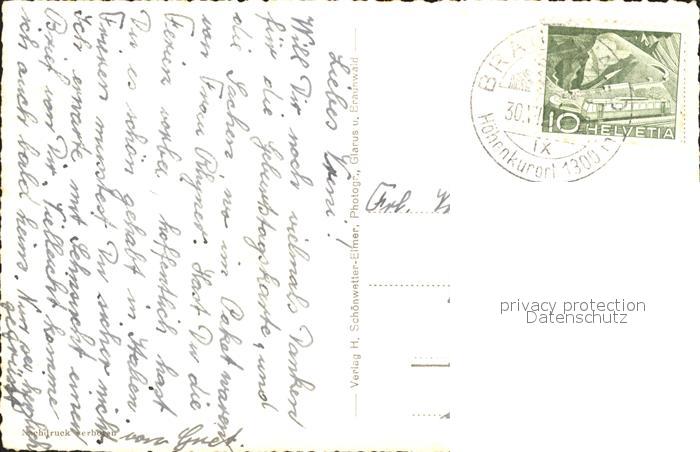 Liebes Vreni!
Will Dir noch vielmals Danken
für die Geburtstagskarte, und
die Sachen wo im Paket waren
von Frau Rhyner. Hast Du die
Ferien vorbei, hoffentlich hast
Du es schön gehabt in Italien
Frieren musstest Du sicher nicht
Ich erwarte mit Sehnsucht einen
Brief von Dir. Vielleicht komme
ich auch bald heim. Nun sei herzl.
gegrüsst
von Gret.
Nachdruck verboten
Verlag H. Schönwetter-Elmer, Photogr., Glarus u. Braunwald
Frl.
BRA
30.
IX
Höhenkurort 1300 m
10 HELVETIA
privacy protection
Datenschutz